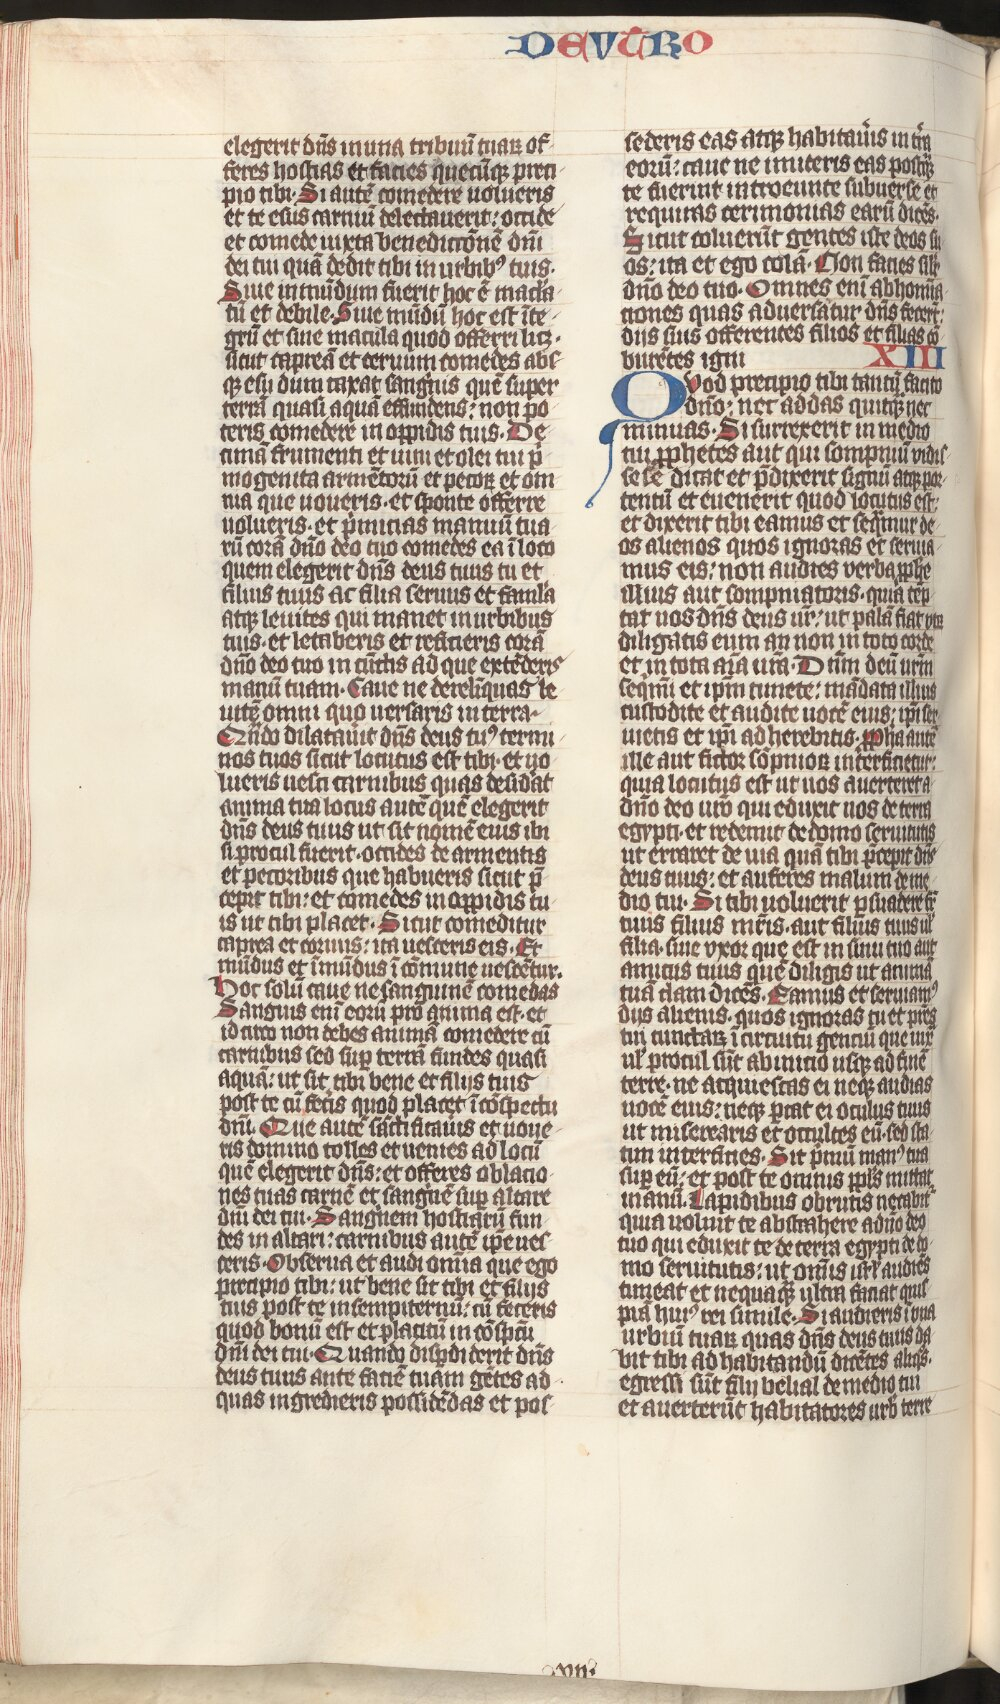 DEUTRO
elegerit dn̄s in una tribuū tuaꝝ of
feres hostias et facies quecūqꝫ preci
pio tibi. Si autē comedere uolueris
et te esus carniū delectauerit: occide
et comede iuxta benedictōnē dn̄i
dei tui quā dedit tibi in urbibꝰ tuis.
Siue inmūdum fuerit hoc ē macla
tū et debile. Siue mūdū hoc est īte
grū et siue macula quod offerri licꝫ.
sicut capreā et ceruum comedes abs
qꝫ esu dum taxat sanguis quē super
terrā quasi aquā effundens: non po
teris comedere in oppidis tuis. De
cima frumenti et uini et olei tui p̄
mogenita armētorū et pecorꝫ et om
nia que uoueris. et sponte offerre
uolueris. et p̄micias manuū tua
rū corā dn̄o deo tuo comedes ea ī loco
quem elegerit dn̄s deus tuus tu et
filius tuus ac filia seruus et famla
atqꝫ leuites qui manet in urbibus
tuis. et letaberis et reficieris corā
dn̄o deo tuo in cūctis ad que extēderis
manū tuam. Caue ne derelīquas le
uitꝫ omni quo uersaris in terra.
Qn̄do dilatauit dn̄s deus tuꝰ termi
nos tuos sicut locutus est tibi. et uo
lueris uesci carnibus quas desidat
anima tua locus autē quē elegerit
dn̄s deus tuus ut sit nomē eius ibi
si procul fuerit. occides de armentis
et pecoribus que habueris sicut p̄
cepit tibi: et comedes in oppidis tu
is ut tibi placet. Sicut comeditur
caprea et coruus: ita uesceris eis. Et
mūdus et īmūdus ī cōmune uescētur.
Hoc solū caue ne sanguinē comedas
Sanguis enī eorū pro anima est. et
idcirco non debes animā comedere cū
carnibus sed sup terrā fundes quasi
aquā: ut sit tibi bene et filijs tuis
post te cū fecis quod placet ī cōspectu
dn̄i. Que autē sāctificauis et uoue
ris domino tolles et uenies ad locū
quē elegerit dn̄s: et offeres oblacio
nes tuas carnē et sangīnē sup altare
dn̄i dei tui. Sanguinem hostiarū fun
des in altari: carnibus autē ip̄e ues
ceris. Obserua et audi om̄ia que ego
precipio tibi: ut bene sit tibi et filijs
tuis post te insempiternū: cū feceris
quod bonū est et placitū in cōspcū
dn̄i dei tui. Quando disp̄diderit dn̄s
deus tuus ante faciē tuam gētes ad
quas ingredieris possidēdas et pos
sederis eas atqꝫ habitaūis in tr̄a
eorū: caue ne imiteris eas postqꝫ
te fuerint introeunte subuerse et
requiras cerimonias earū dicēs.
Sicut coluerūt gentes iste deos su
os: ita et ego colā. Non facies silr
dn̄o deo tuo. Omnes enī abhomīa
ciones quas aduersatur dn̄s fecert:
diis suis offerentes filios et filias cō
burētes igni
XIII
Quod precipio tibi tantū facito
dn̄o: nec addas quicqꝫ nec
minuas. Si surrexerit in medio
tui ꝓphetes aut qui sompniū vidis
se se dicat et p̄dixerit signū atqꝫ por
tentū et euenerit quod locutus est:
et dixerit tibi eamus et seqmur de
os alienos quos ignoras et seruia
mus eis: non audies verba ꝓphe
illius aut sompniatoris. quia tēp
tat uos dn̄s deus ur̄: ut palā fiat vtꝝ
diligatis eum an non in toto corde
et in tota aīa ur̄a. Dn̄m deū ur̄m
seqmī et ip̄m timete: mādata illius
custodite et audite uocē eius: ip̄i ser
uietis et ip̄i adherebitis. ꝓpha autē
ille aut fictor sōpnioꝝ interficietur:
quia locutus est ut uos auerteret a
dn̄o deo uro qui eduxit uos de terra
egypti. et redemit de domo seruitutis
ut erraret de uia quā tibi p̄cepit dn̄s
deus tuus: et auferes malum de me
dio tui. Si tibi uoluerit ꝑsuadere fr̄
tuus filius mr̄is. aut filius tuus ul̄
filia. siue vxor que est in sinu tuo aut
amicus tuus quē diligis ut animā
tuā clam dicēs. Eamus et seruiamꝰ
dijs alienis. quos ignoras tu et pr̄es
tui cunctaꝝ ī circuitu genciū que iux̄
ul̄ procul sūt abinicio usqꝫ ad finē
terre. ne acquiescas ei neqꝫ audias
uocē eius: neqꝫ ꝑcat ei oculus tuus
ut miserearis et occultes eū. sed sta
tim interficies. Sit p̄mū manꝰ tua
sup eū: et post te omnis ppl̄s mittat
manū. Lapidibus obrutis necabit̄
quia uoluit te abstrahere a dn̄o deo
tuo qui eduxit te de terra egypti de do
mo seruitutis: ut om̄is isrl̄ audiēs
timeat et nequaqꝫ ultra faciat quis
piā huiꝰ rei simile. Si audieris ī una
urbiū tuaꝝ quas dn̄s deus tuus da
bit tibi ad habitandū dicētes aliqs.
egressi sūt filij belial de medio tui
et auerterūt habitatores urbˢ terre